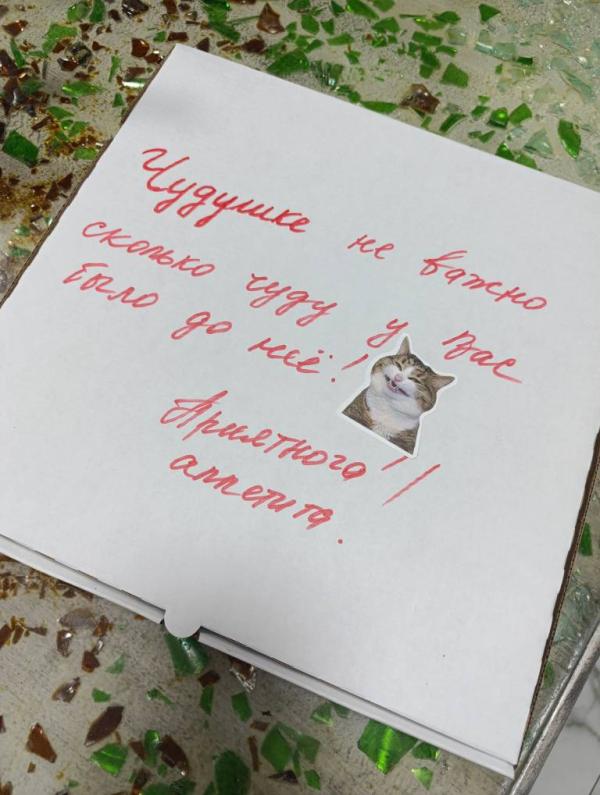 Чудушке не важно
сколько чуду у вас
было до неё!
Приятного!!
аппетита.